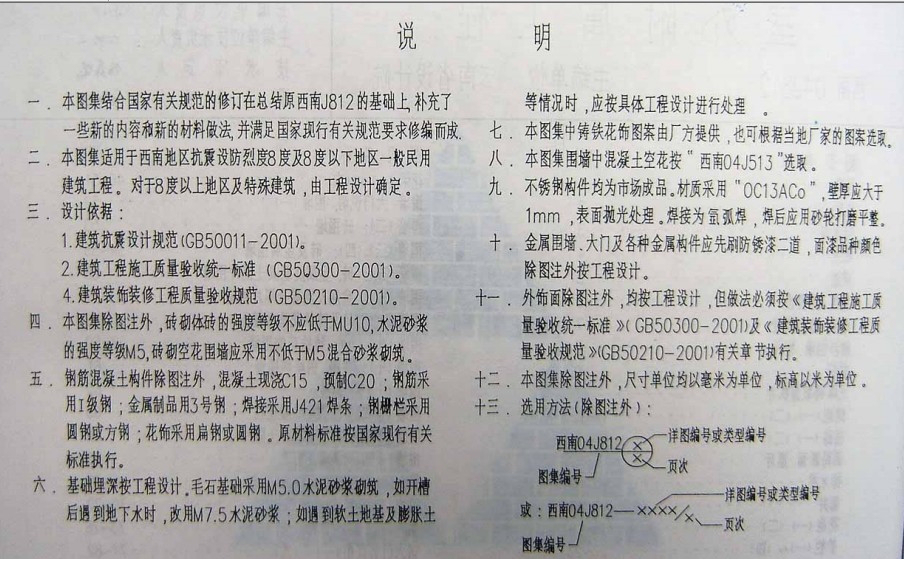 说 明
一．本图集结合国家有关规范的修订在总结原西南J812的基础上,补充了
一些新的内容和新的材料做法,并满足国家现行有关规范要求修编而成.
二．本图集适用于西南地区抗震设防烈度8度及8度以下地区一般民用
建筑工程。对于8度以上地区及特殊建筑，由工程设计确定。
三．设计依据：
1.建筑抗震设计规范(GB50011-2001)。
2.建筑工程施工质量验收统一标准（GB50300-2001)。
4.建筑装饰装修工程质量验收规范（GB50210-2001)。
四．本图集除图注外,砖砌体砖的强度等级不应低于MU10,水泥砂浆
的强度等级M5,砖砌空花围墙应采用不低于M5混合砂浆砌筑。
五．钢筋混凝土构件除图注外，混凝土现浇C15，预制C20；钢筋采
用I级钢；金属制品用3号钢；焊接采用J421焊条；钢栅栏采用
圆钢或方钢；花饰采用扁钢或圆钢。原材料标准按国家现行有关
标准执行。
六．基础埋深按工程设计.毛石基础采用M5.0水泥砂浆砌筑，如开槽
后遇到地下水时，改用M7.5水泥砂浆；如遇到软土地基及膨胀土
等情况时，应按具体工程设计进行处理 。
七．本图集中铸铁花饰图案由厂方提供，也可根据当地厂家的图案选取。
八．本图集围墙中混凝土空花按"西南04J513"选取。
九．不锈钢构件均为市场成品。材质采用"0C13ACo"，壁厚应大于
1mm，表面抛光处理。焊接为氩弧焊，焊后应用砂轮打磨平整。
十．金属围墙、大门及各种金属构件应先刷防锈漆二道，面漆品种颜色
除图注外按工程设计。
十一．外饰面除图注外，均按工程设计，但做法必须按《建筑工程施工质
量验收统一标准》(GB50300-2001)及《建筑装饰装修工程质
量验收规范》(GB50210-2001)有关章节执行。
十二．本图集除图注外，尺寸单位均以毫米为单位，标高以米为单位。
十三．选用方法(除图注外)：
西南04J812 × × 详图编号或类型编号
页次
图集编号
或：西南04J812—××××/× 详图编号或类型编号
页次
图集编号